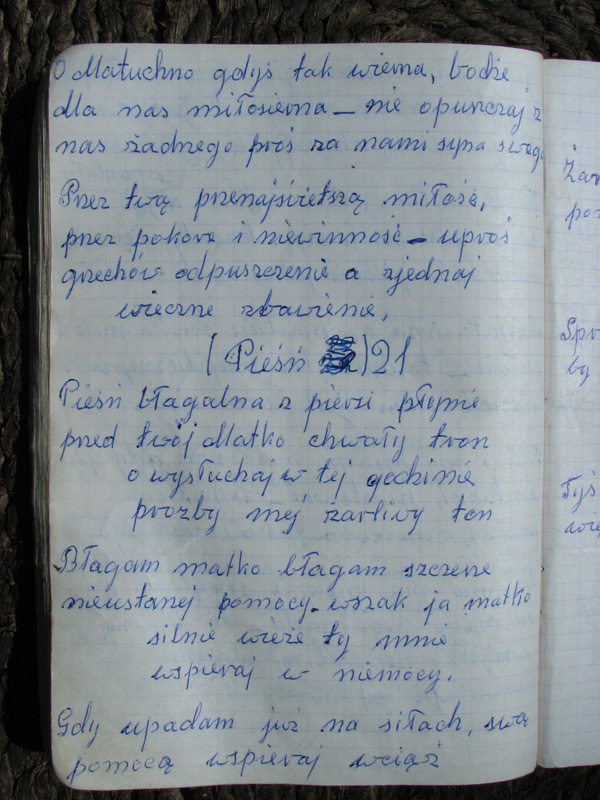 O Matuchno gdyś tak wierna, bodźe
dla nas miłosierna – nie opuszczaj z
nas żadnego proś za nami syna swego
Przez twą przenajświetszą miłość,
przez pokore i niewinność – uproś
grzechów odpuszczenie a zjednaj
wieczne zbawienie,
(Pieśń ) 21
Pieśń błagalna z piersi płynie
przed twój Matko chwały tron
o wysłuchaj w tej godzinie
prożby mej żarliwy ton
Błagam matko błagam szczerze
nieustanej pomocy. wszak ja matko
silnie wieże ty mnie
wspieraj w niemocy.
Gdy upadam już na siłach, swą
pomocą wspieraj wciąż
Spr
by
Tyś